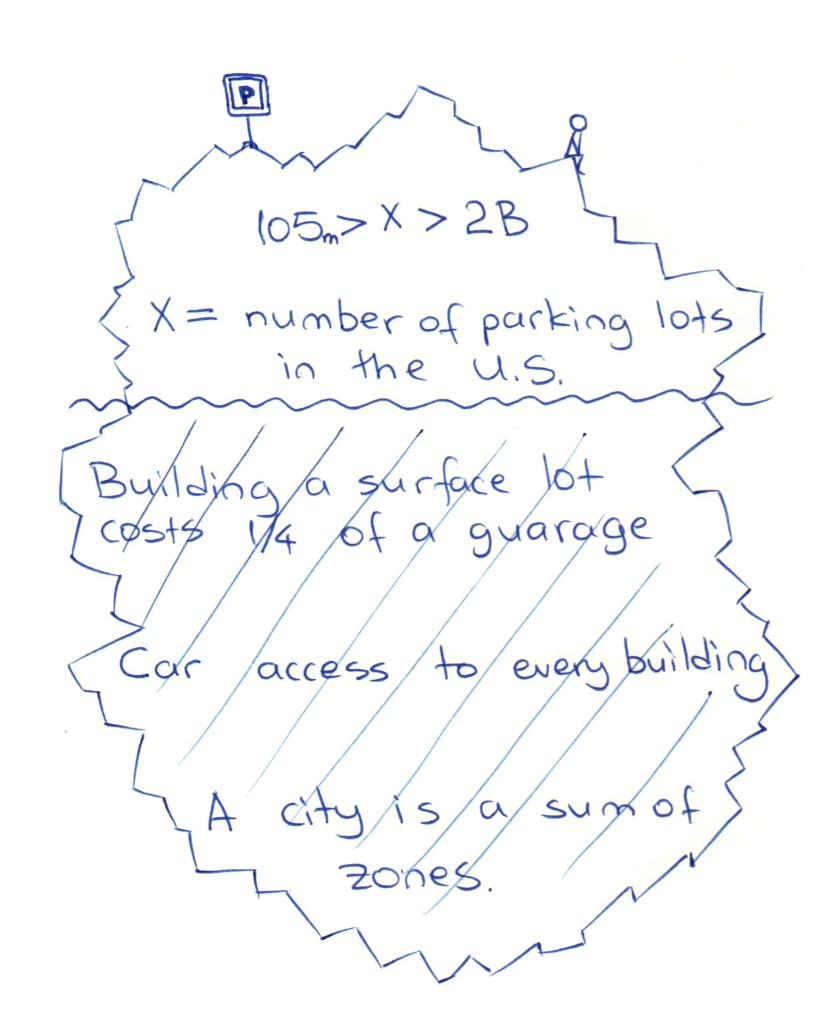 P
105m > X > 2B
X = number of parking lots
in the U.S.
Building a surface lot
costs 1/4 of a guarage
Car access to every building
A city is a sum of
zones.